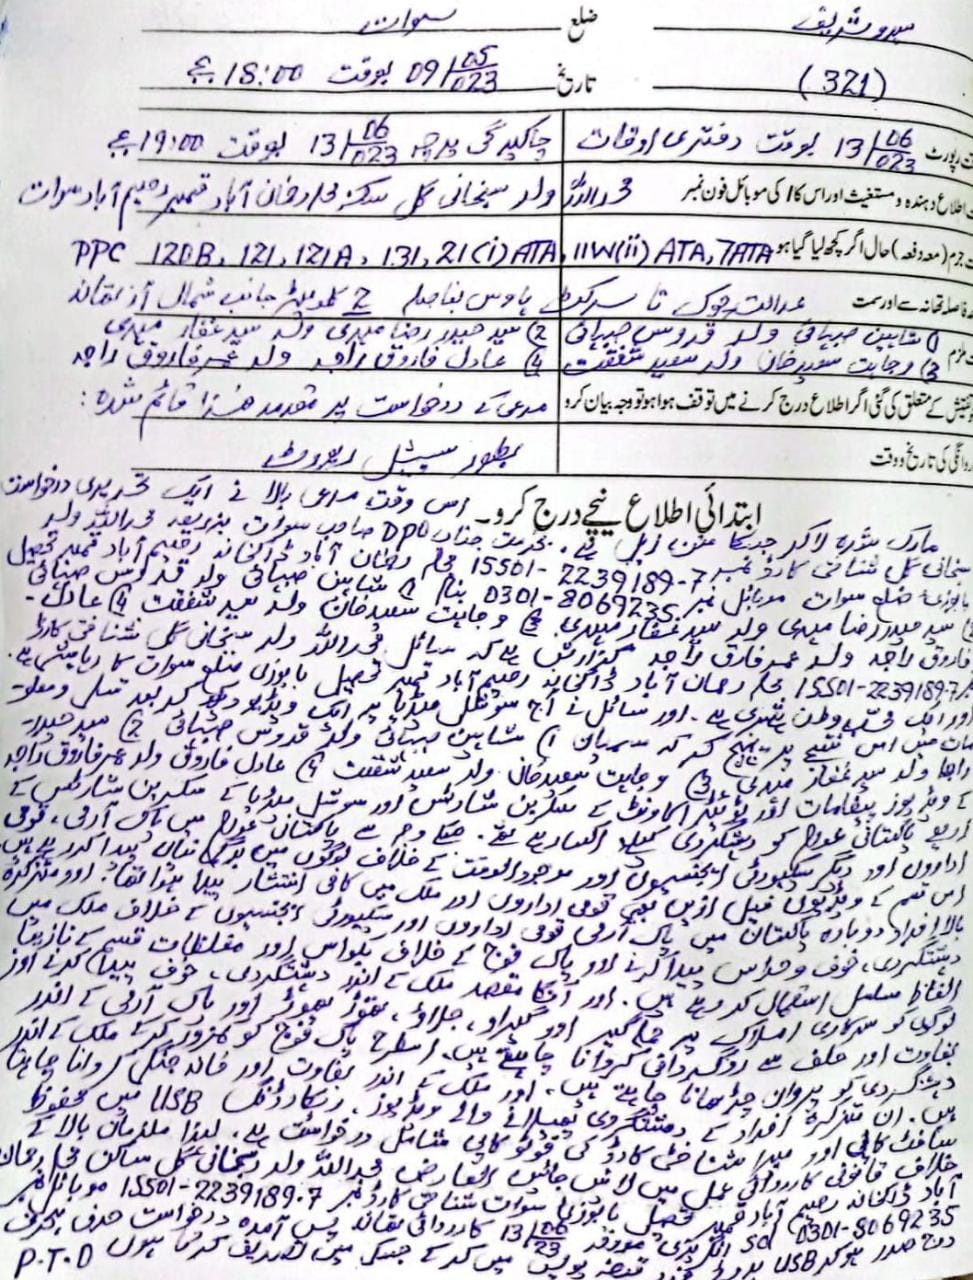 سیدو شریف ضلع سوات
(321) تاریخ 09/05/023 بوقت 18:00 بجے
رپورٹ 13/06/023 بوقت دفتری اوقات چاکیدگی پرچہ 13/06/023 بوقت 19:00 بجے
اطلاع دہندہ و مستغیث اور اس کا / کی موبائل فون نمبر ولد سبحانی گل سکنہ آباد قمبر رحیم آباد سوات
جرم (معہ دفعہ) حال اگر کچھ لیا گیا ہو PPC 120B, 121, 121A, 131, 21(i) ATA, 11W(ii) ATA, 7ATA
فاصلہ تھانہ سے اور سمت عدالت چوک تا سرکٹ ہاوس بفاصلہ 2 کلومیٹر جانب شمال از تھانہ
1) شاہین صہبائی ولد قدوس صہبائی 2) سید حیدر رضا مہدی ولد سید غفار مہدی
ملزم 3) وجاہت سعید خان ولد سعید شفقت 4) عادل فاروق راجہ ولد عمر فاروق راجہ
تفتیش کے متعلق کی گئی اگر اطلاع درج کرنے میں توقف ہوا ہو تو وجہ بیان کرو مدعی کے درخواست پر مقدمہ ھذا قائم شدہ:
روانگی کی تاریخ و وقت بطور سپیشل رپورٹ
ابتدائی اطلاع نیچے درج کرو۔ اس وقت مدعی بالا نے ایک تحریری درخواست
جناب DPO صاحب سوات ولد
سبحانی گل شناختی کارڈ نمبر 15501-2239189-7 آباد ڈاکخانہ رحیم آباد قمبر تحصیل
بابوزی ضلع سوات موبائل نمبر 0301-8069235 بنام 1) شاہین صہبائی ولد قدوس صہبائی
2) سید حیدر رضا مہدی ولد سید غفار مہدی 3) وجاہت سعید خان ولد سعید شفقت 4) عادل
فاروق راجہ ولد عمر فاروق راجہ گزارش ہے کہ سائل ولد سبحانی گل شناختی کارڈ
نمبر 15501-2239189-7 آباد ڈاکخانہ رحیم آباد قمبر تحصیل بابوزی ضلع سوات کا رہائشی ہے.
اور ایک محب وطن شہری ہے. اور سائل نے آج سوشل میڈیا پر ایک ویڈیو دیکھ کر بعد تسلی و
میں اس نتیجے پر پہنچ کر کہ 1) شاہین صہبائی ولد قدوس صہبائی 2) سید حیدر
ولد سید غفار مہدی 3) وجاہت سعید خان ولد سعید شفقت 4) عادل فاروق ولد عمر فاروق راجہ
کے ویڈیوز پیغامات اور ٹویٹر اکاونٹ کے سکرین شارٹس اور سوشل میڈیا کے سکرین شارٹس کے
ذریعے پاکستانی عوام کو دہشتگردی کیلئے اکسا رہے تھے. وجہ سے پاکستانی عوام میں پاک آرمی، قومی
اداروں اور دیگر سیکیورٹی ایجنسیوں اور موجودہ حکومت کے خلاف لوگوں میں پیدا کر رہے ہیں.
اس قسم کے ویڈیوں قبل ازیں بھی قومی اداروں اور ملک میں کافی انتشار پیدا ہوا تھا. اور متذکرہ
بالا افراد دوبارہ پاکستان میں پاک آرمی قومی اداروں اور سیکیورٹی ایجنسیوں کے خلاف ملک میں
دہشتگردی، خوف و ہراس پیدا کرنے اور پاک فوج کے خلاف بکواس اور مغلظات قسم کے نازیبا
الفاظ مسلسل استعمال کر رہے ہیں. اور مقصد ملک کے اندر دہشتگردی، خوف پیدا کرنے اور
لوگوں کو سرکاری املاک پر اور گھیراو، جلاو، توڑ پھوڑ اور پاک آرمی کے اندر
بغاوت اور حلف سے روگردانی کروانا چاہتے ہیں. اسطرح پاک فوج کو کمزور کر کے ملک کے اندر
دہشتگردی کو پروان چڑھانا چاہتے ہیں. اور ملک کے اندر بغاوت اور خانہ جنگی کروانا چاہتے
ہیں. ان متذکرہ افراد کے دہشتگردی پھیلانے والے ویڈیوز، ریکارڈنگ USB میں محفوظ
کاپی اور میرا شناختی کارڈ کی فوٹو کاپی شامل درخواست ہے. لہذا ملزمان بالا کے
خلاف قانونی کارروائی عمل میں لائی جائیں العارض ولد سبحانی گل ساکن
آباد ڈاکخانہ رحیم آباد قمبر تحصیل بابوزی سوات شناختی کارڈ نمبر 15501-2239189-7 موبائل نمبر
0301-8069235 Sd انگریزی مورخہ 13/06/23 کارروائی تھانہ پس آمدہ درخواست حرف بحرف
درج صدر ہو کر USB قبضہ پولیس میں کر کے جسکی میں تصدیق کرتا ہوں P.T.O